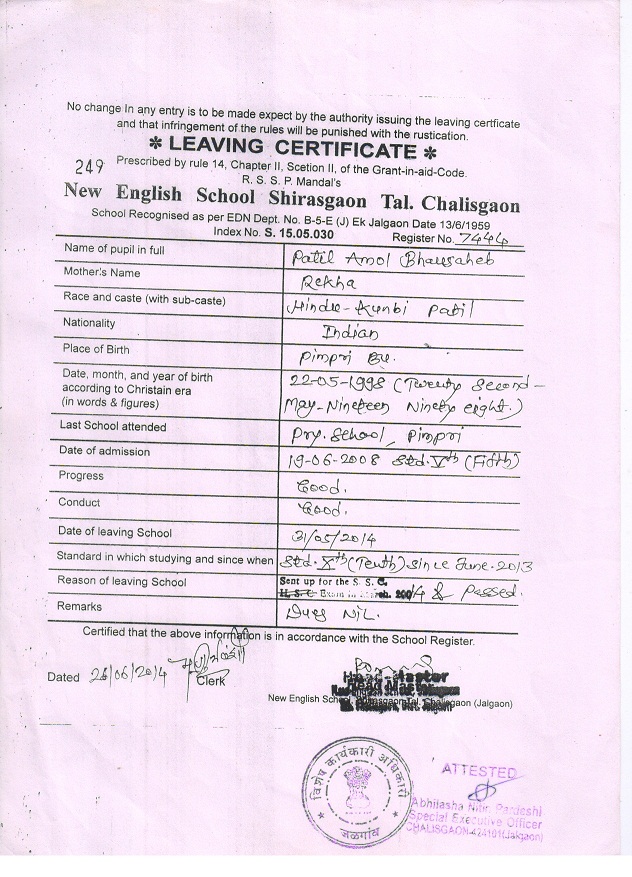 No change In any entry is to be made expect by the authority issuing the leaving certficate
and that infringement of the rules will be punished with the rustication.
* LEAVING CERTIFICATE *
249
Prescribed by rule 14, Chapter II, Scetion II, of the Grant-in-aid-Code.
R. S. S. P. Mandal's
New English School Shirasgaon Tal. Chalisgaon
School Recognised as per EDN Dept. No. B-5-E (J) Ek Jalgaon Date 13/6/1959
Index No. S. 15.05.030
Register No. 7444
Name of pupil in full Patil Amol Bhausaheb
Mother's Name Rekha
Race and caste (with sub-caste) Hindu-Kunbi Patil
Nationality Indian
Place of Birth Pimpri Bu.
Date, month, and year of birth according to Christain era (in words & figures) 22-05-1998 (Twenty Second-
May-Nineteen Ninety eight.)
Last School attended Pry. School, Pimpri
Date of admission 19-06-2008 Std. Vth (Fifth)
Progress Good.
Conduct Good.
Date of leaving School 31/05/2014
Standard in which studying and since when Std. Xth (Tenth) since June-2013
Reason of leaving School Sent up for the S. S. C.
H. S. C. Exam in March. 2014 & Passed.
Remarks Dues Nil.
Certified that the above information is in accordance with the School Register.
Dated 26/06/2014
Clerk
Head Master
New English School, Tal. Chalisgaon (Jalgaon)
विशेष कार्यकारी अधिकारी
जळगांव
ATTESTED
Abhilasha Nitin Pardeshi
Special Executive Officer
CHALISGAON-424101(Jalgaon)